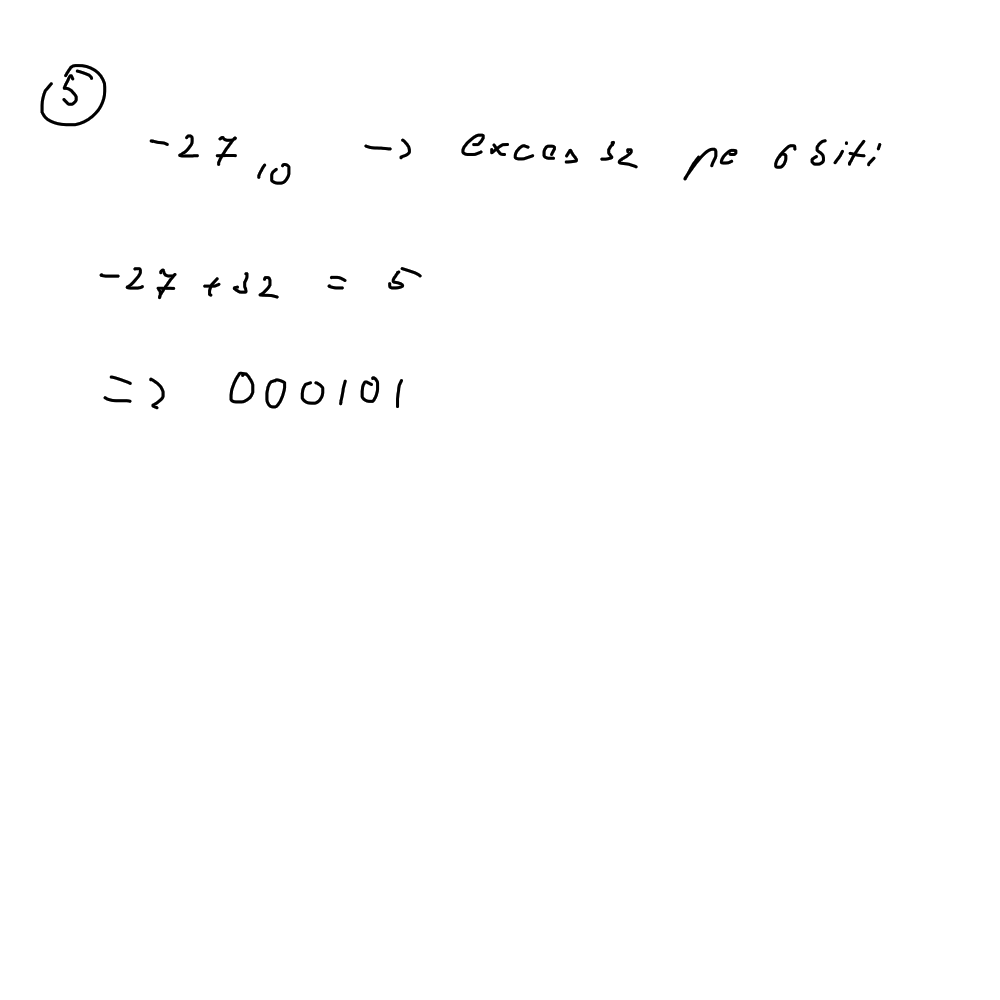 5
-27₁₀ -> exces 32 pe 6 biti
-27 + 32 = 5
=> 000101